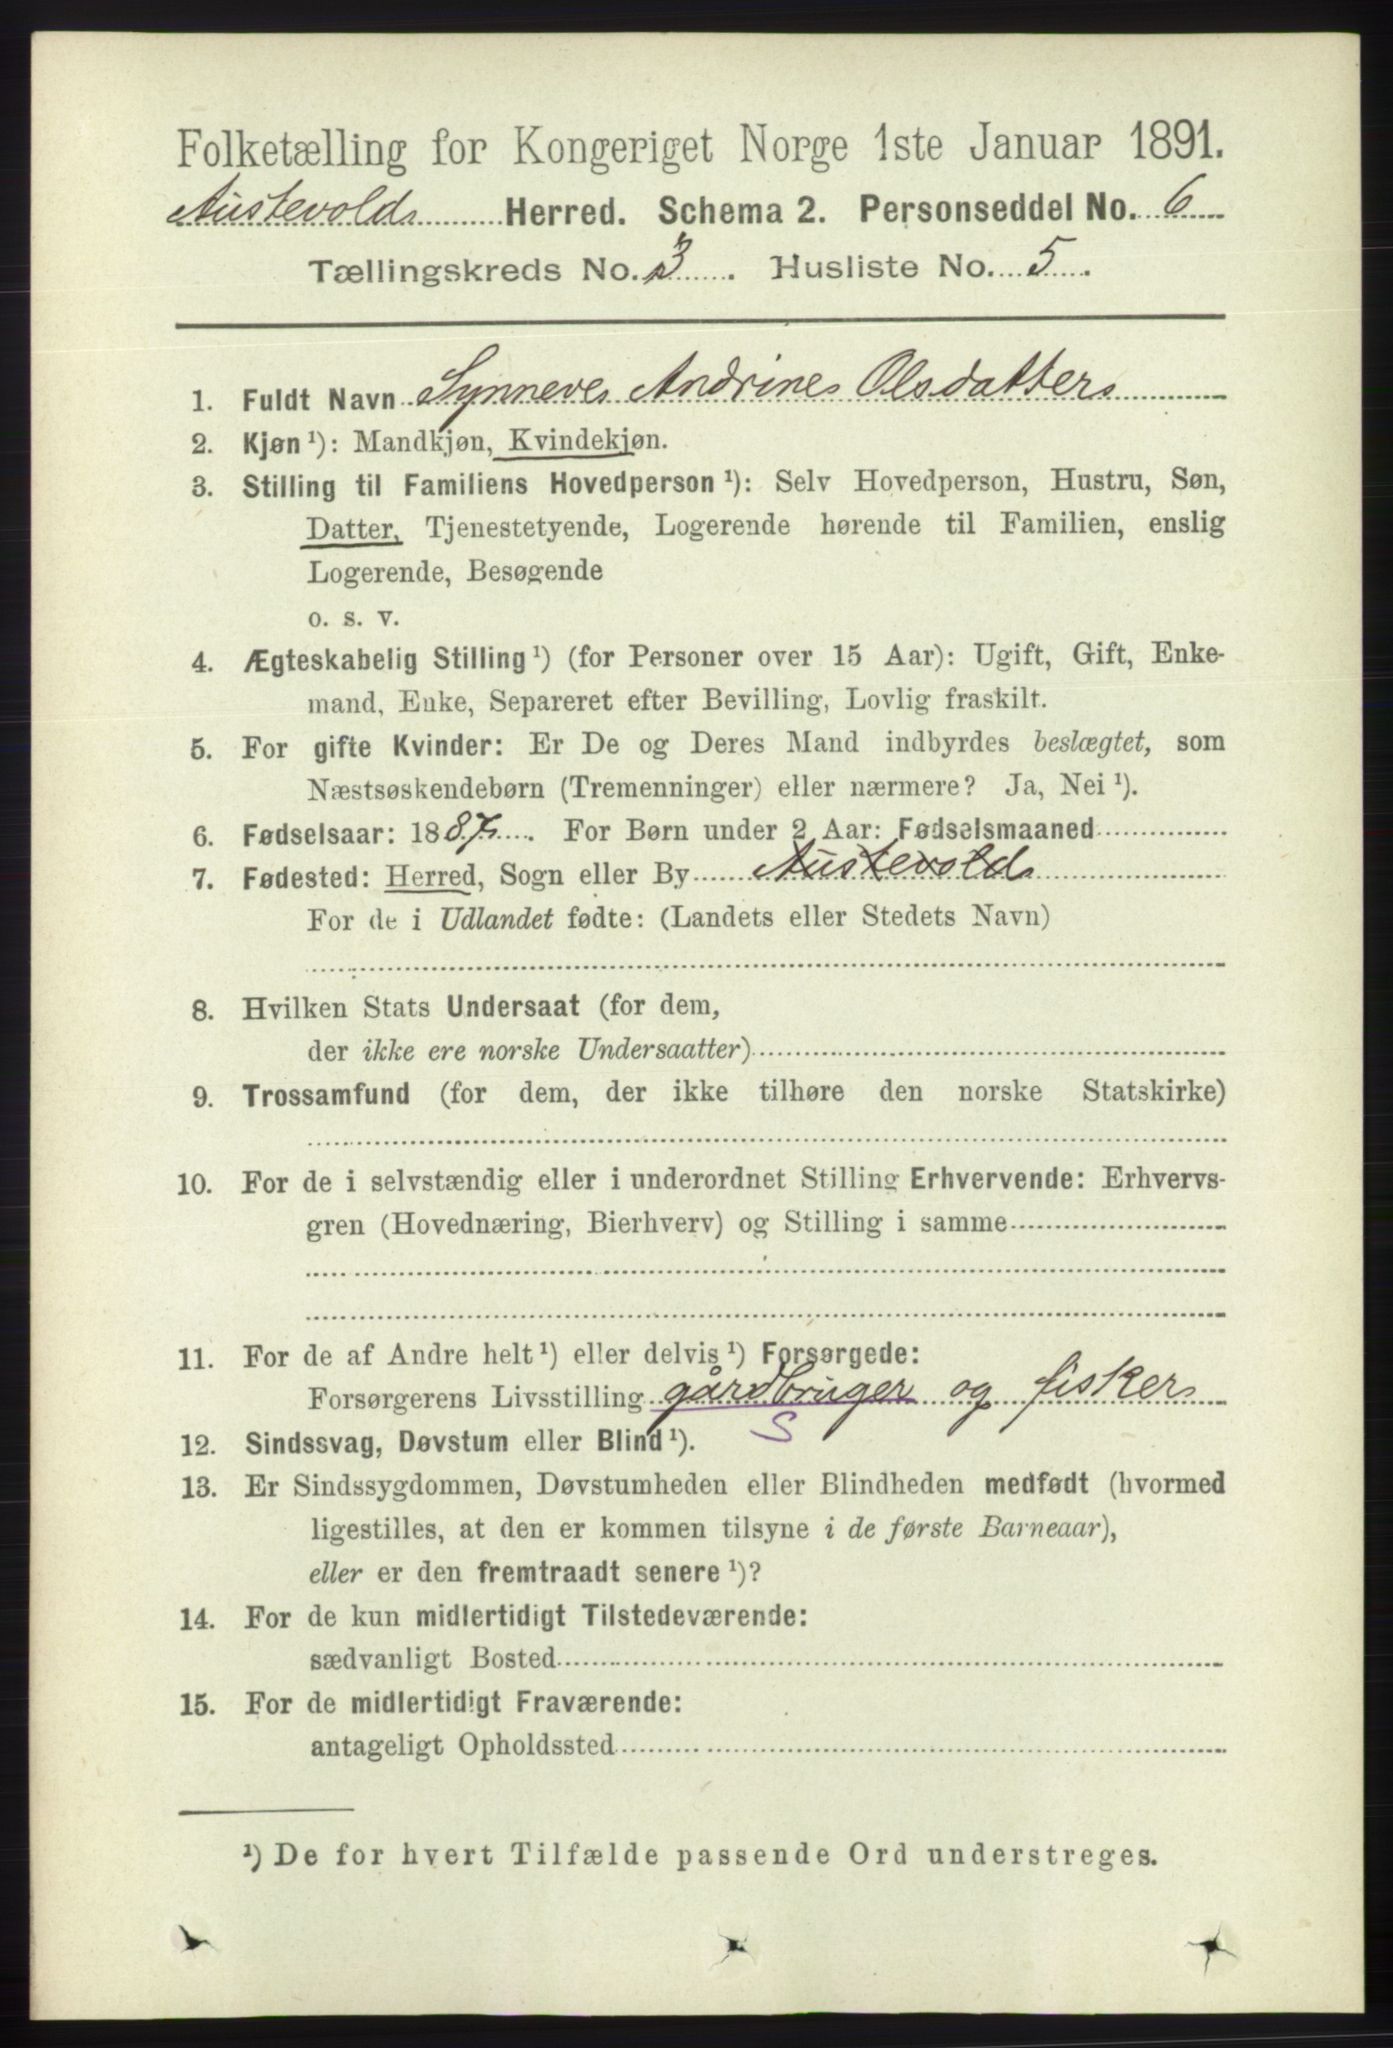 Folketælling for Kongeriget Norge 1ste Januar 1891.
Austevold Herred. Schema 2. Personseddel No. 6
Tællingskreds No. 3. Husliste No. 5.
1. Fuldt Navn Synneve Andrine Olsdatter
2. Kjøn ¹): Mandkjøn, Kvindekjøn.
3. Stilling til Familiens Hovedperson ¹): Selv Hovedperson, Hustru, Søn,
Datter, Tjenestetyende, Logerende hørende til Familien, enslig
Logerende, Besøgende
o. s. v.
4. Ægteskabelig Stilling ¹) (for Personer over 15 Aar): Ugift, Gift, Enke-
mand, Enke, Separeret efter Bevilling, Lovlig fraskilt.
5. For gifte Kvinder: Er De og Deres Mand indbyrdes beslægtet, som
Næstsøskendebørn (Tremenninger) eller nærmere? Ja, Nei ¹).
6. Fødselsaar: 1887. For Børn under 2 Aar: Fødselsmaaned
7. Fødested: Herred, Sogn eller By Austevold
For de i Udlandet fødte: (Landets eller Stedets Navn)
8. Hvilken Stats Undersaat (for dem,
der ikke ere norske Undersaatter)
9. Trossamfund (for dem, der ikke tilhøre den norske Statskirke)
10. For de i selvstændig eller i underordnet Stilling Erhvervende: Erhvervs-
gren (Hovednæring, Bierhverv) og Stilling i samme
11. For de af Andre helt ¹) eller delvis ¹) Forsørgede:
Forsørgerens Livsstilling gårdbruger og fisker
S
12. Sindssvag, Døvstum eller Blind ¹).
13. Er Sindssygdommen, Døvstumheden eller Blindheden medfødt (hvormed
ligestilles, at den er kommen tilsyne i de første Barneaar),
eller er den fremtraadt senere ¹)?
14. For de kun midlertidigt Tilstedeværende:
sædvanligt Bosted
15. For de midlertidigt Fraværende:
antageligt Opholdssted
¹) De for hvert Tilfælde passende Ord understreges.